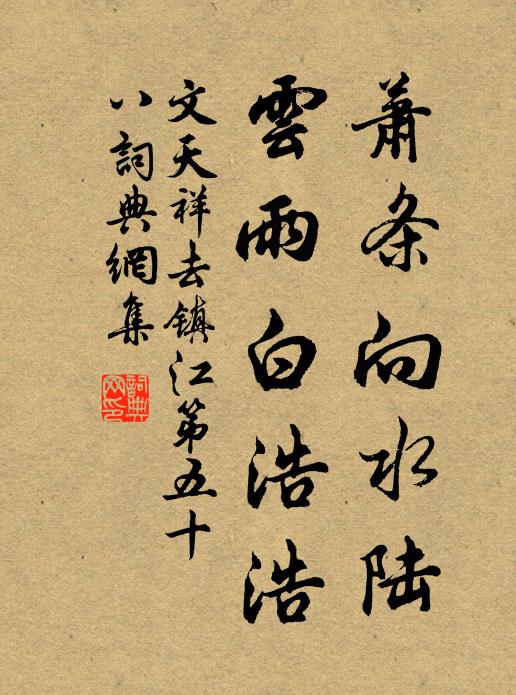 萧条向水陆
雲雨白浩浩
文天祥去镇江第五十
八詞典網集
詞典
网印